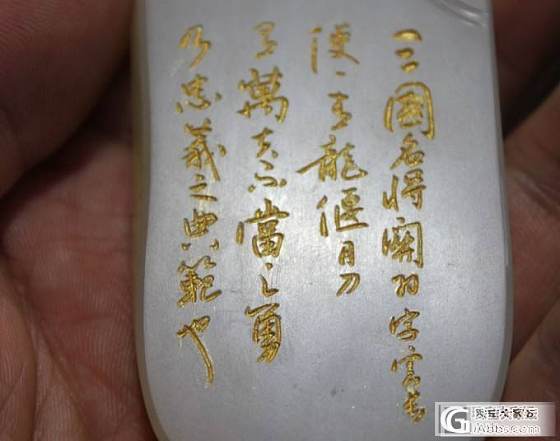 三國名将關羽字雲長
使一青龍偃月刀
有萬夫不當之勇
乃忠義之典範也